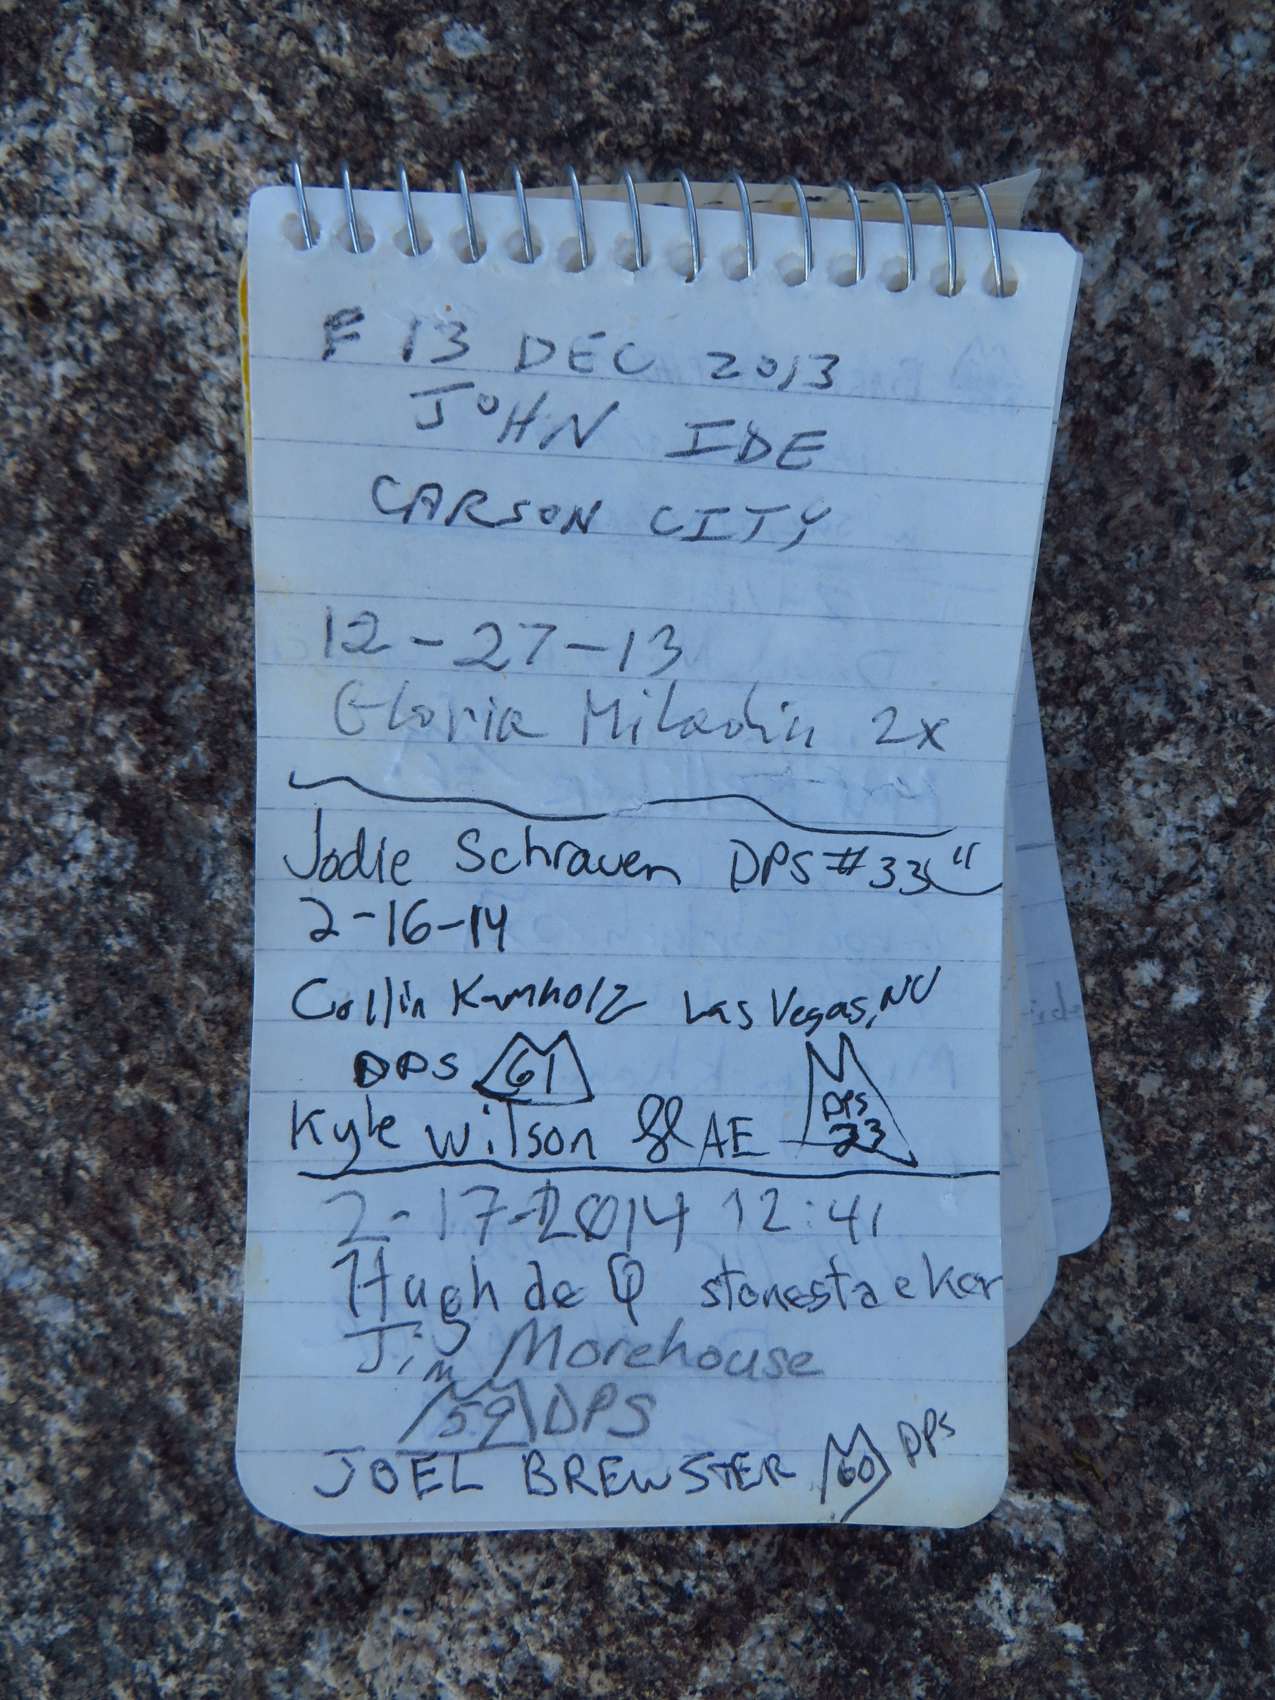 F 13 DEC 2013
JOHN IDE
CARSON CITY
12-27-13
Gloria Miladin 2x
Jodie Schraven DPS #33
2-16-14
Collin Kamholz Las Vegas, NV
DPS 61
Kyle Wilson AE DPS 23
2-17-2014 12:41
Hugh de Q stonestacker
Jim Morehouse
59 DPS
JOEL BREWSTER 60 DPS